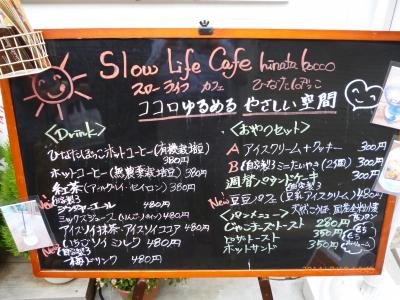 Slow Life Cafe hinata bocco
スローライフ カフェ ひなたぼっこ
ココロゆるめる やさしい空間
<Drink>
ひなたぼっこホットコーヒー(有機栽培豆)
380円
ホットコーヒー(無農薬栽培豆)
380円
紅茶(アールグレイ・セイロン) 380円
New
ジンジャーエール 480円
ミックスジュース 480円
アイスソイ抹茶・アイスソイココア 480円
New
いちごソイミルク 480円
梅ドリンク 480円
<おやつセット>
A アイスクリーム+クッキー 300円
B (自家製)ミニたいやき(2個) 300円
週替シフォンケーキ 300円
New 豆豆パフェ(豆乳アイスクリーム) 480円
<パンメニュー> 天然こうぼ 国産小麦
じゃこチーズトースト 280円
ピザトースト 350円
ホットサンド 350円